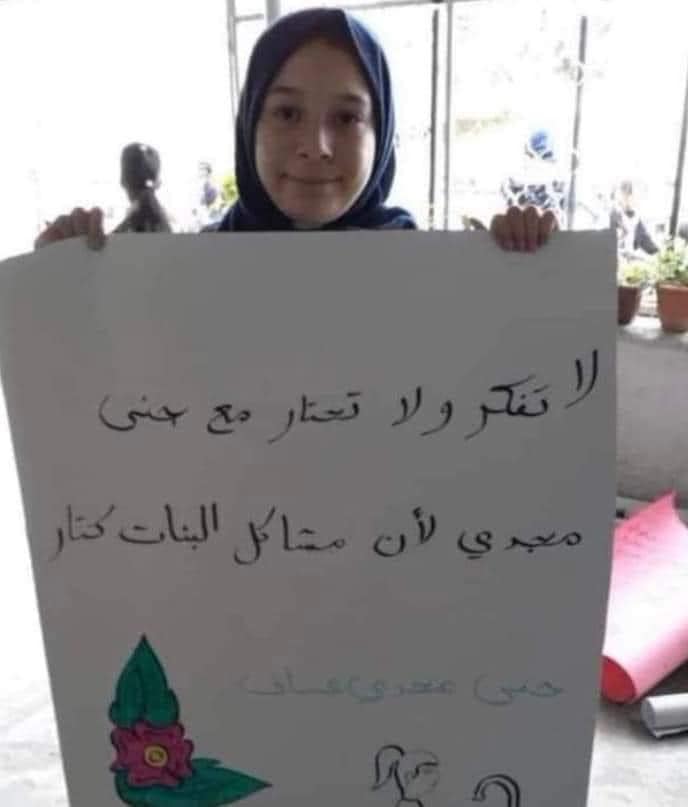 لا تفكر ولا تحتار مع جنى
مجدي لأن مشاكل البنات كتار
جنى مجدي عساف